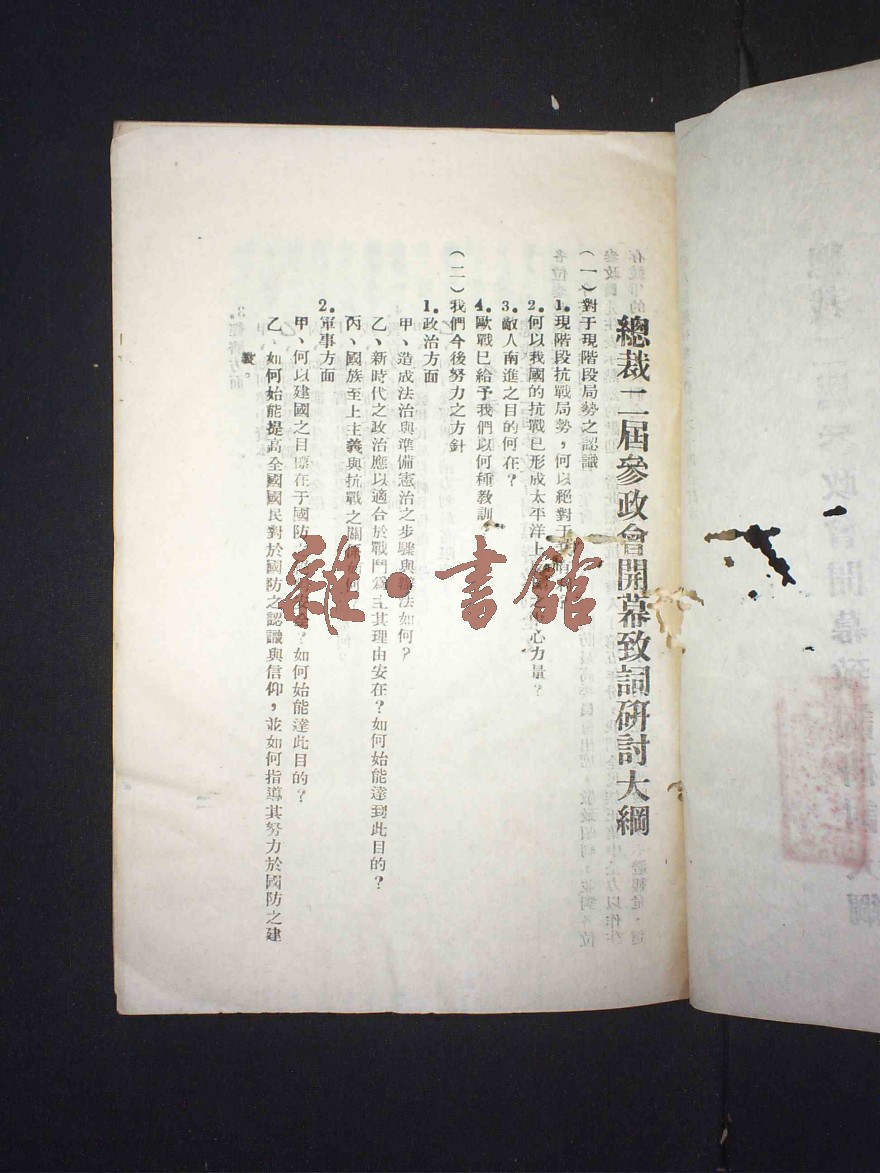 總裁二屆參政會開幕致詞研討大綱
(一)對于現階段局勢之認識
1.現階段抗戰局勢,何以絕對于我有利?
2.何以我國的抗戰已形成太平洋上心力量?
3.敵人南進之目的何在?
4.歐戰已給予我們以何種教訓?
(二)我們今後努力之方針
1.政治方面
甲、造成法治與準備憲治之步驟與辦法如何?
乙、新時代之政治應以適合於戰鬥爲主其理由安在?如何始能達到此目的?
丙、國族至上主義與抗戰之關係如何
2.軍事方面
甲、何以建國之目標在于國防?如何始能達此目的?
乙、如何始能提高全國國民對於國防之認識與信仰,並如何指導其努力於國防之建
設。
雜·書館